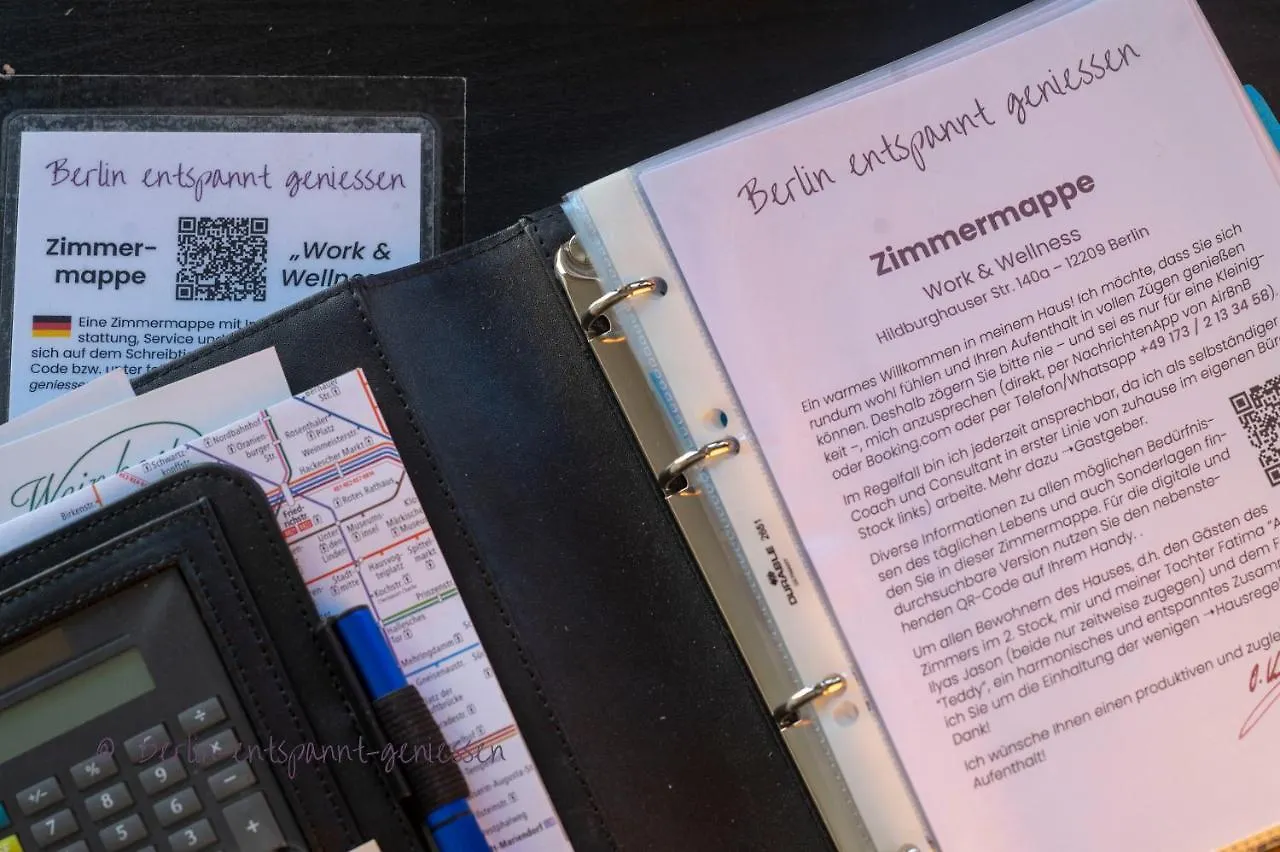 Berlin entspannt geniessen
Zimmer-
mappe
„Work &
Eine Zimmermappe mit
stattung, Service
sich auf dem
Code bzw. unter
Berlin entspannt geniessen
Zimmermappe
Work & Wellness
Hildburghauser Str. 140a – 12209 Berlin
Ein warmes Willkommen in meinem Haus! Ich möchte, dass Sie sich
rundum wohl fühlen und Ihren Aufenthalt in vollen Zügen genießen
können. Deshalb zögern Sie bitte nie – und sei es nur für eine Kleinig-
keit –, mich anzusprechen (direkt, per NachrichtenApp von AirBnB
oder Booking.com oder per Telefon/Whatsapp +49 173 / 2 13 34 58).
Im Regelfall bin ich jederzeit ansprechbar, da ich als selbständiger
Coach und Consultant in erster Linie von zuhause im eigenen
Stock links) arbeite. Mehr dazu →Gastgeber.
Diverse Informationen zu allen möglichen Bedürfnis-
sen des täglichen Lebens und auch Sonderlagen fin-
den Sie in dieser Zimmermappe. Für die digitale und
durchsuchbare Version nutzen Sie den nebenste-
henden QR-Code auf Ihrem Handy. .
Um allen Bewohnern des Hauses, d.h. den Gästen des
Zimmers im 2. Stock, mir und meiner Tochter Fatima
Ilyas Jason (beide nur zeitweise zugegen) und dem
"Teddy", ein harmonisches und entspanntes
ich Sie um die Einhaltung der wenigen
Dank!
Ich wünsche Ihnen einen produktiven und
Aufenthalt!
DURABLE 2681
Nordbahnhof
Oranien-
burger
Str.
Rosenthaler
Platz
Weinmeisterstr.
Hackescher Markt
Rotes Rathaus
Birkenstr.
Fried-
richstr.
Unter
den
Linden
Museums-
insel
Märkisches
Museum
Stadt-
mitte
Hausvog-
teiplatz
Spittel-
markt
Kochstr.
Prinzenstr.
Hallesches
Tor
Mehringdamm
Gneisenaustr.
Platz der
Luftbrücke
Mariendorf
÷
%
9
×
+/-
8
6
−
7
5
3
+
© Berlin entspannt-geniessen